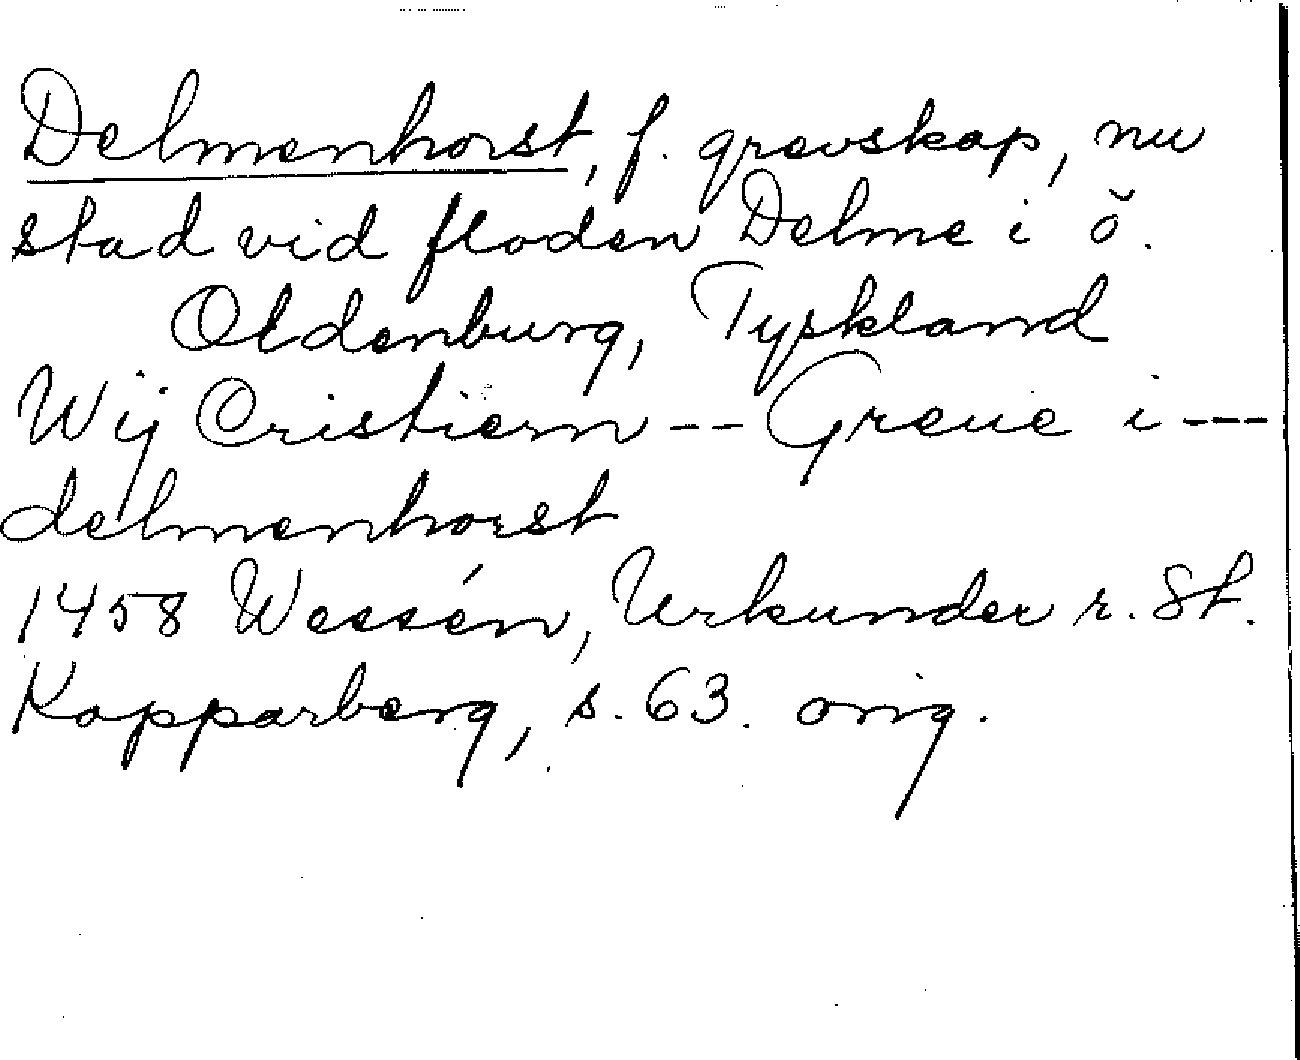 Delmenhorst, f. grevskap, nu
stad vid floden Delme i ö.
Oldenburg, Tyskland
Wij Cristiern -- Greue i ---
delmenhorst
1458 Wessén, Urkunder r. St.
Kopparberg, s. 63. orig.